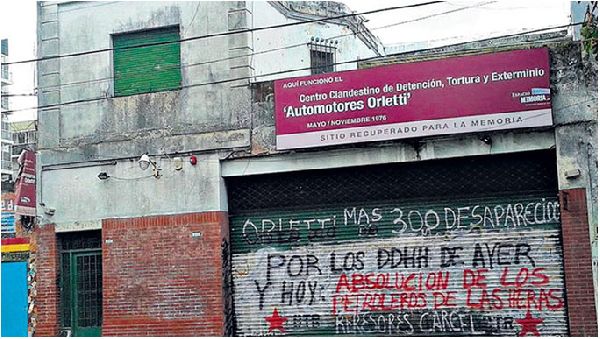 AQUÍ FUNCIONÓ EL
Centro Clandestino de Detención, Tortura y Exterminio
'Automotores Orletti'
MAYO / NOVIEMBRE 1976
SITIO RECUPERADO PARA LA MEMORIA
ORLETTI MAS 300 DESAPARECIDOS
POR LOS DDHH DE AYER
Y HOY: ABSOLUCION DE LOS
PETROLEROS DE LAS HERAS
CARCEL